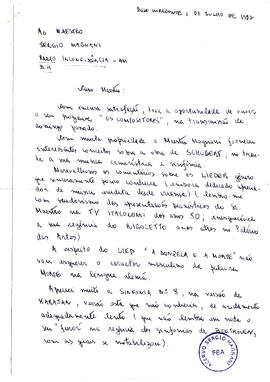 BELO HORIZONTE, 1 DE JULHO DE 1987
AO MAESTRO
SERGIO MAGNANI
RÁDIO INCONFIDÊNCIA - AM
B.H
Caro Mestre:
Com imensa satisfação, tive a oportunidade de ouvir
o seu programa "OS COMPOSITORES", na transmissão de
domingo passado.
Com muita propriedade o Mestre Magnani forneceu
interessantes conceitos sobre a obra de SCHUBERT, no tocan-
te a sua música camerística e sinfônica.
Maravilhosos os comentários sobre os LIEDER
que sinceramente pouco conhecia (embora dedicado aprecia-
dor de música erudita desde criança) (lembro-me
com saudosismo das apresentações pianísticas do
Maestro na TV ITACOLOMI dos anos 50; inesquecível
a sua regência do RIGOLETTO anos atrás no Palácio
das Artes)
A respeito do LIED "A DONZELA E A MORTE" não
vou esquecer o caráter masculino da palavra
MORTE na língua alemã.
Apreciei muito a SINFONIA Nº 8, na versão de
KARAJAN, versão esta que não conhecia, de andamento
adequadamente lento (que não lembra em nada o
seu "furor" na regência das sinfonias de BEETHOVEN,
com as quais se notabilizou).
ACERVO SERGIO MAGNANI
FEA